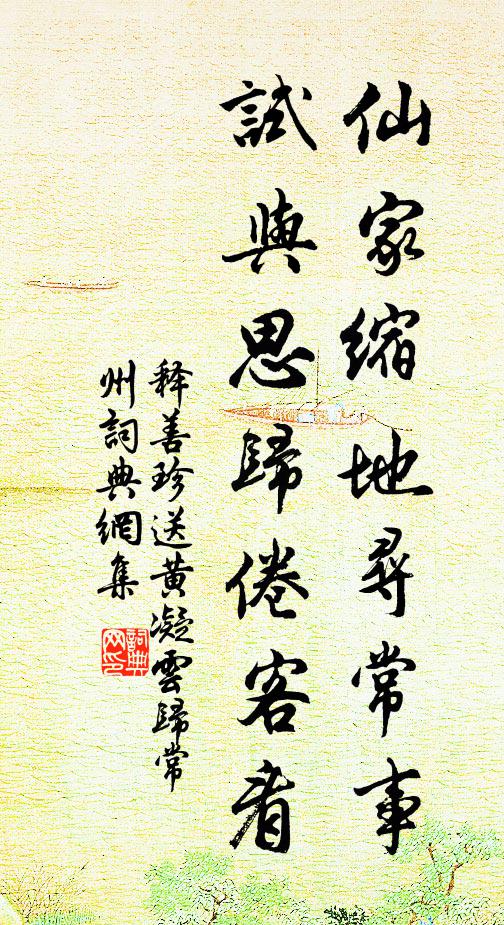 仙家縮地尋常事
試與思歸倦客看
释善珍送黄凝雲歸常
州詞典網集
詞典网印